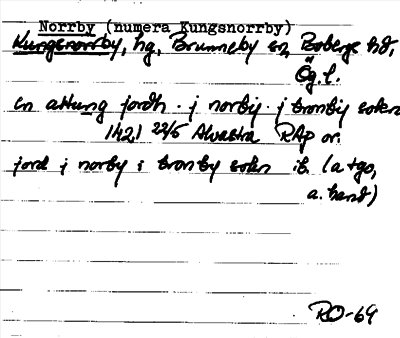 Norrby (numera Kungsnorrby)
Kungsnorrby, hg, Brunneby sn, Bobergs hd,
Ög. l.
en attung jordh j norby j bronby sokn
1421 22/5 Alvastra RAp or.
jord j norby i bronby sokn ib. (a tgo,
a. hand)
RO-69